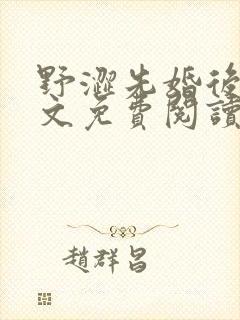 野澀先婚後
文免費閱讀
趙群昌